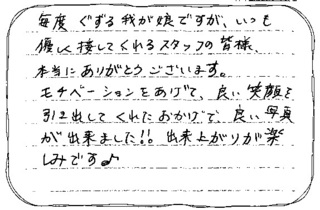 毎度 ぐずる我が娘ですが、いつも
優しく接してくれるスタッフの皆様、
本当にありがとうございます。
モチベーションをあげて、良い笑顔を
引き出してくれたおかげで、良い写真
が出来ました!! 出来上がりが楽
しみです♪